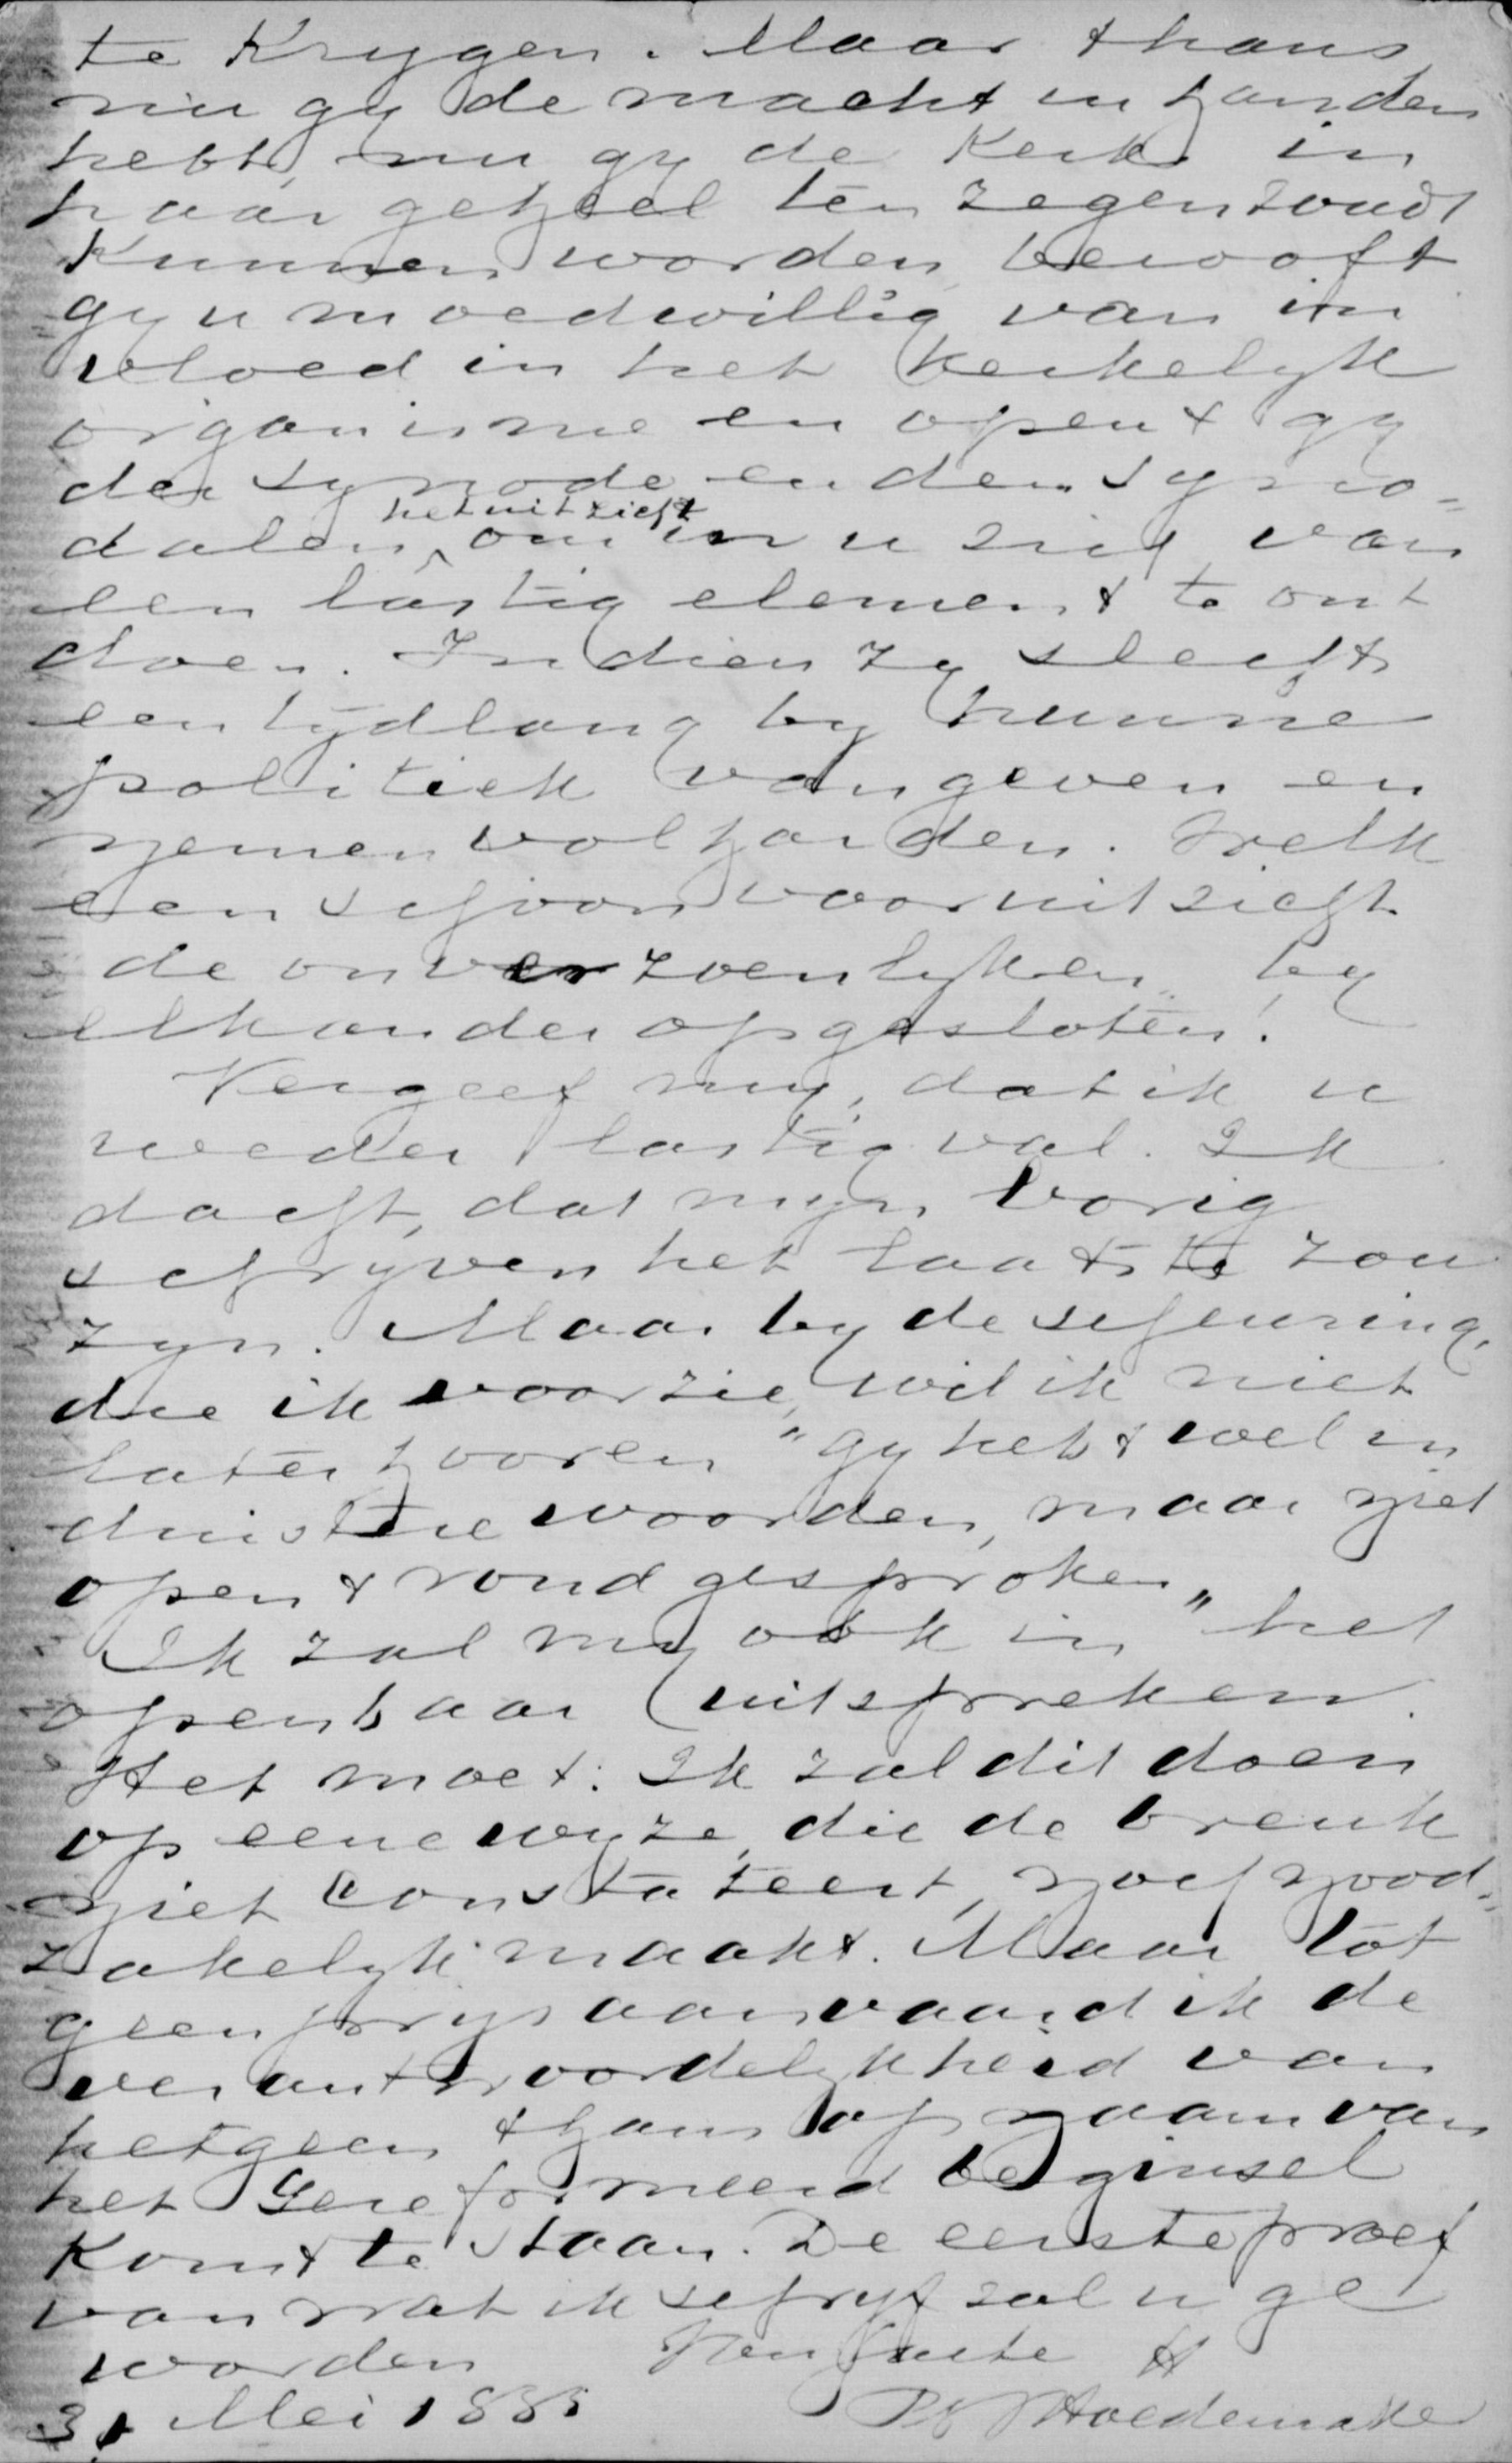 te Krygen. Maar thans
nu gy de macht in handen
hebt, nu gy de Kerk in
haar geheel ten zegen zoudt
Kunnen worden, berooft
gy u moedwillig van in
vloed in het Kerkelyk
organisme en opent gy
der synode en den syno=
dalen het uitzicht om in u zich van
een lastig element te ont
doen. Indien zy slechts
een tydlang by hunne
politiek van geven en
nemen volharden. Welk
een schoon vooruitzicht
de onverzoenlyken by
elkander opgesloten!
Vergeef my, dat ik u
weder lastig val. Ik
dacht, dat myn vorig
schryven het laatste zou
zyn. Maar by de scheuring,
die ik voorzie, wil ik niet
laten hooren "gy hebt wel in
duistere woorden, maar niet
open & rond gesproken"
Ik zal my ook in het
openbaar uitspreken.
Het moet. Ik zal dit doen
op eene wyze, die de breuk
niet constateert, noch nood=
zakelyk maakt. Maar tot
geen prys aanvaard ik de
verantwoordelykheid van
hetgeen thans op naam van
het Gereformeerd beginsel
Komt te staan. De eerste proef
van wat ik schryf zal u ge
worden
Hoedemaker
31 Mei 1885